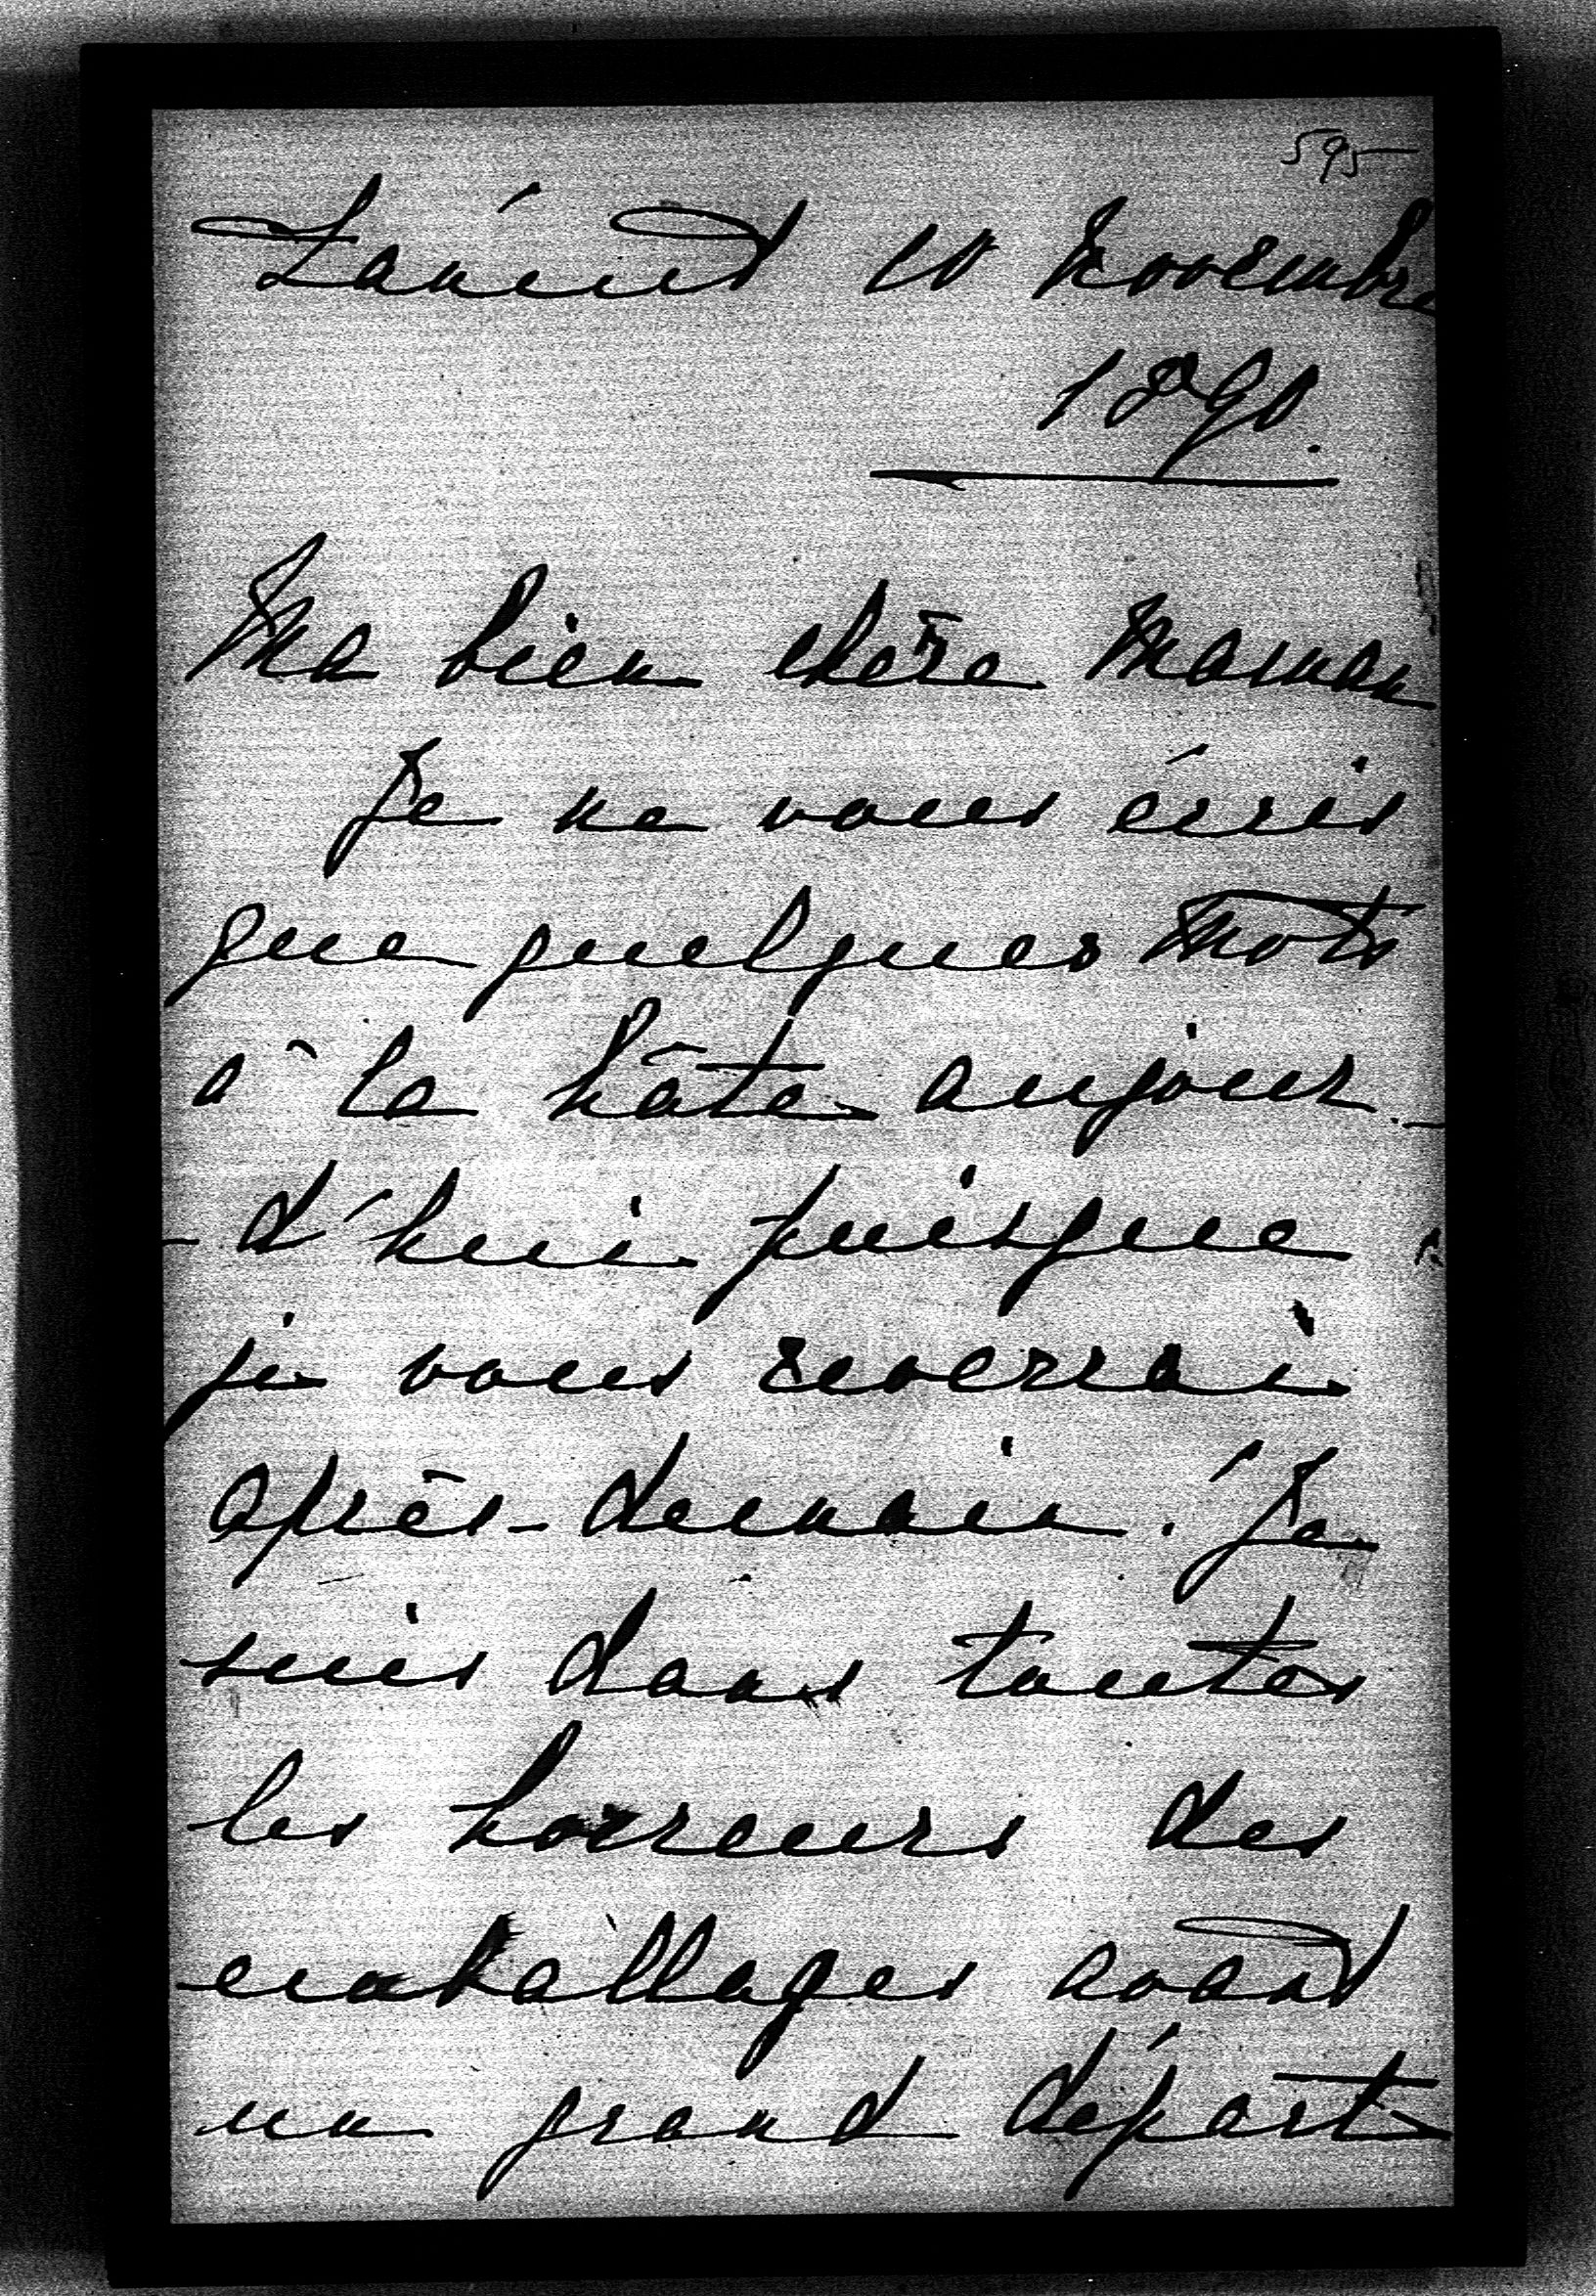 595
Laniend 10 Novembre
1890.
Ma bien chère Maman
Je ne vous écris
que quelques mots
à la hâte aujour-
-d'hui puisque
je vous reverrai
après-demain. Je
suis dans toutes
les horreurs des
emballages avant
un grand départ